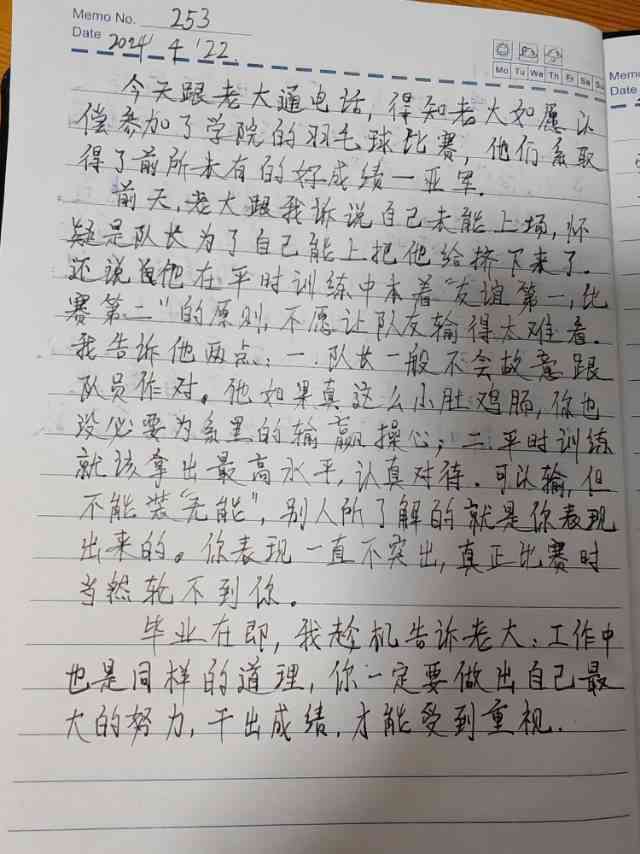 Memo No. 253
Date 2024 4 '22
Mo Tu We Th Fr Sa Su
Memo
Date
今天跟老大通电话,得知老大如愿以
偿参加了学院的羽毛球比赛,他们系取
得了前所未有的好成绩一亚军.
前天,老大跟我诉说自己未能上场,怀
疑是队长为了自己能上把他给挤下来了.
还说他在平时训练中本着“友谊第一,比
赛第二”的原则,不愿让队友输得太难看.
我告诉他两点:一.队长一般不会故意跟
队员作对。他如果真这么小肚鸡肠,你也
没必要为系里的输赢操心;二.平时训练
就该拿出最高水平,认真对待.可以输,但
不能装“无能”,别人所了解的就是你表现
出来的。你表现一直不突出,真正比赛时
当然轮不到你。
毕业在即,我趁机告诉老大:工作中
也是同样的道理,你一定要做出自己最
大的努力,干出成绩,才能受到重视.